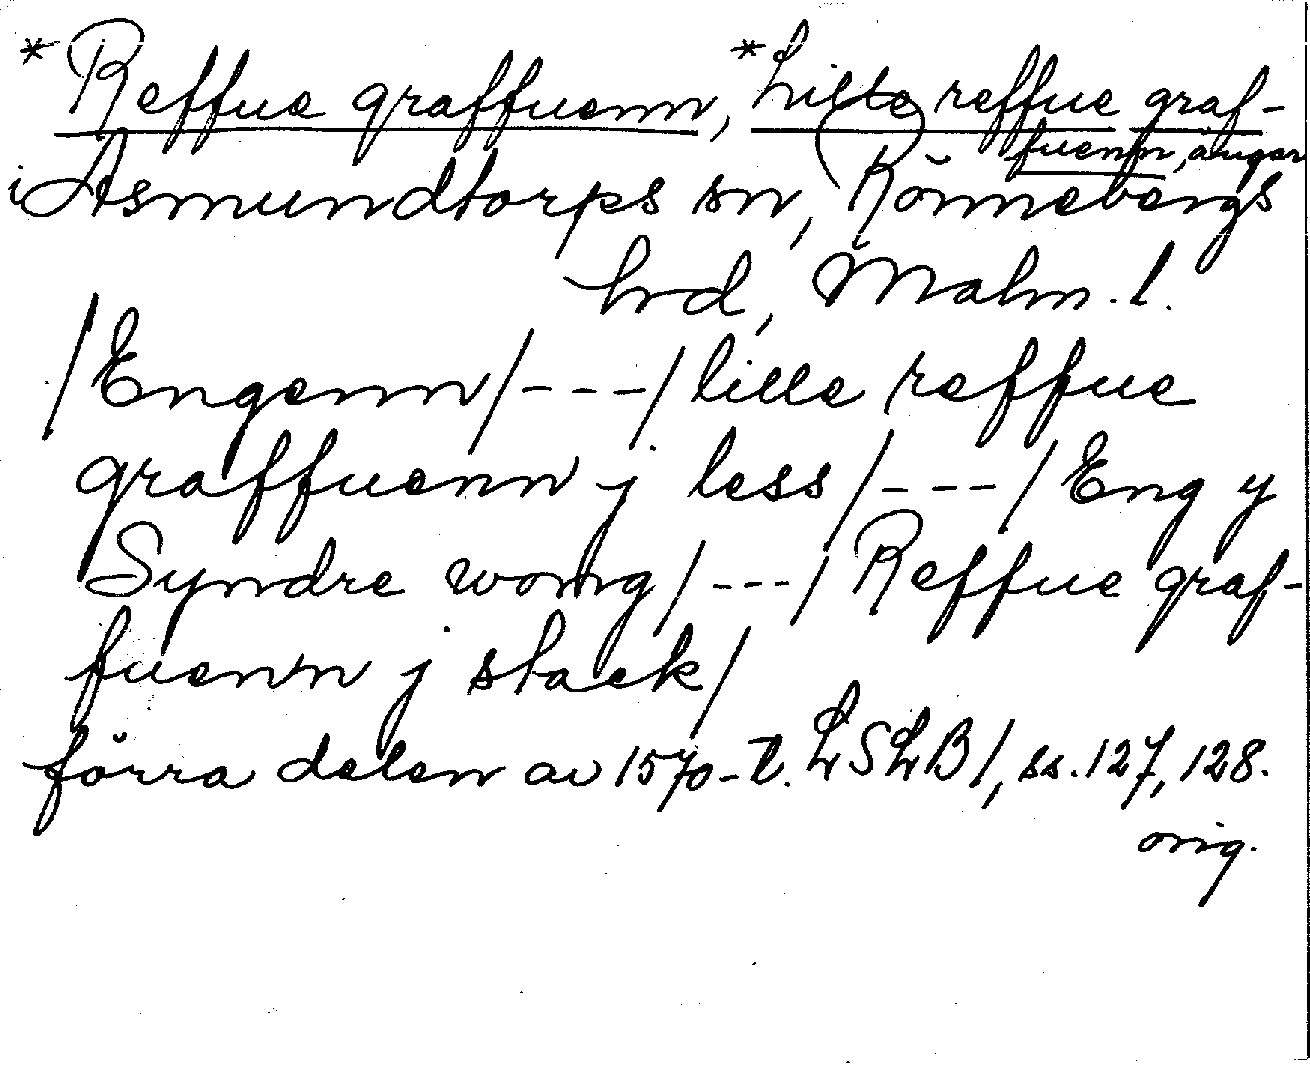 *Reffue graffuenn, *Lille reffue graf-
fuenn, ängar
i Asmundtorps sn, Rönnebergs
hrd, Malm. l.
/Engenn/---/lille reffue
graffuenn j less/---/Eng y
Syndre wong/---/Reffue graf-
fuenn j stack/
förra delen av 1570-t. LSLB 1, ss. 127, 128.
orig.